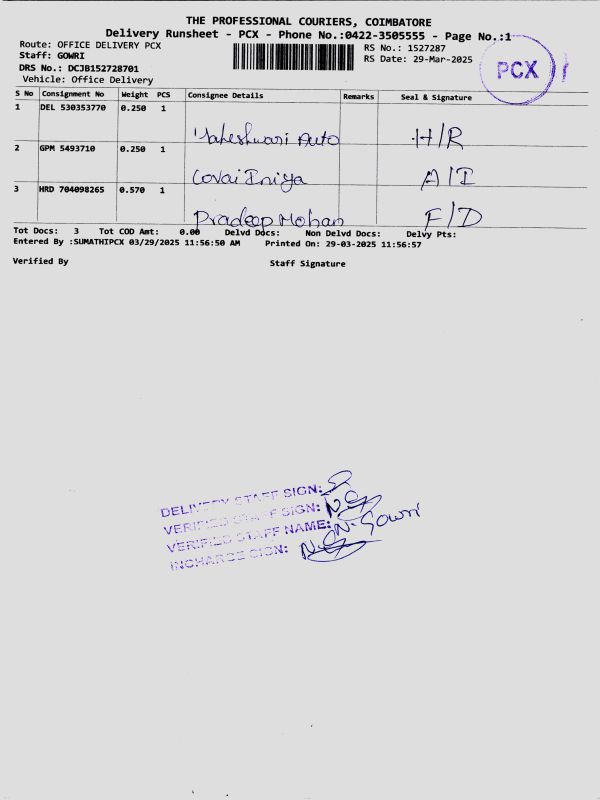 THE PROFESSIONAL COURIERS, COIMBATORE
Delivery Runsheet - PCX - Phone No.:0422-3505555 - Page No.:1
Route: OFFICE DELIVERY PCX
Staff: GOWRI
RS No.: 1527287
DRS No.: DCJB152728701
RS Date: 29-Mar-2025
Vehicle: Office Delivery
PCX
S No Consignment No Weight PCS Consignee Details Remarks Seal & Signature
1 DEL 530353770 0.250 1
Maheshwari Auto H/R
2 GPM 5493710 0.250 1
Covai Iniya A/I
3 HRD 704098265 0.570 1
Pradeep Mohan F/D
Tot Docs: 3 Tot COD Amt: 0.00 Delvd Docs: Non Delvd Docs: Delvy Pts:
Entered By :SUMATHIPCX 03/29/2025 11:56:50 AM Printed On: 29-03-2025 11:56:57
Verified By Staff Signature
DELIVERY STAFF SIGN:
VERIFIED STAFF SIGN:
VERIFIED STAFF NAME: N. Gowri
INCHARGE SIGN: